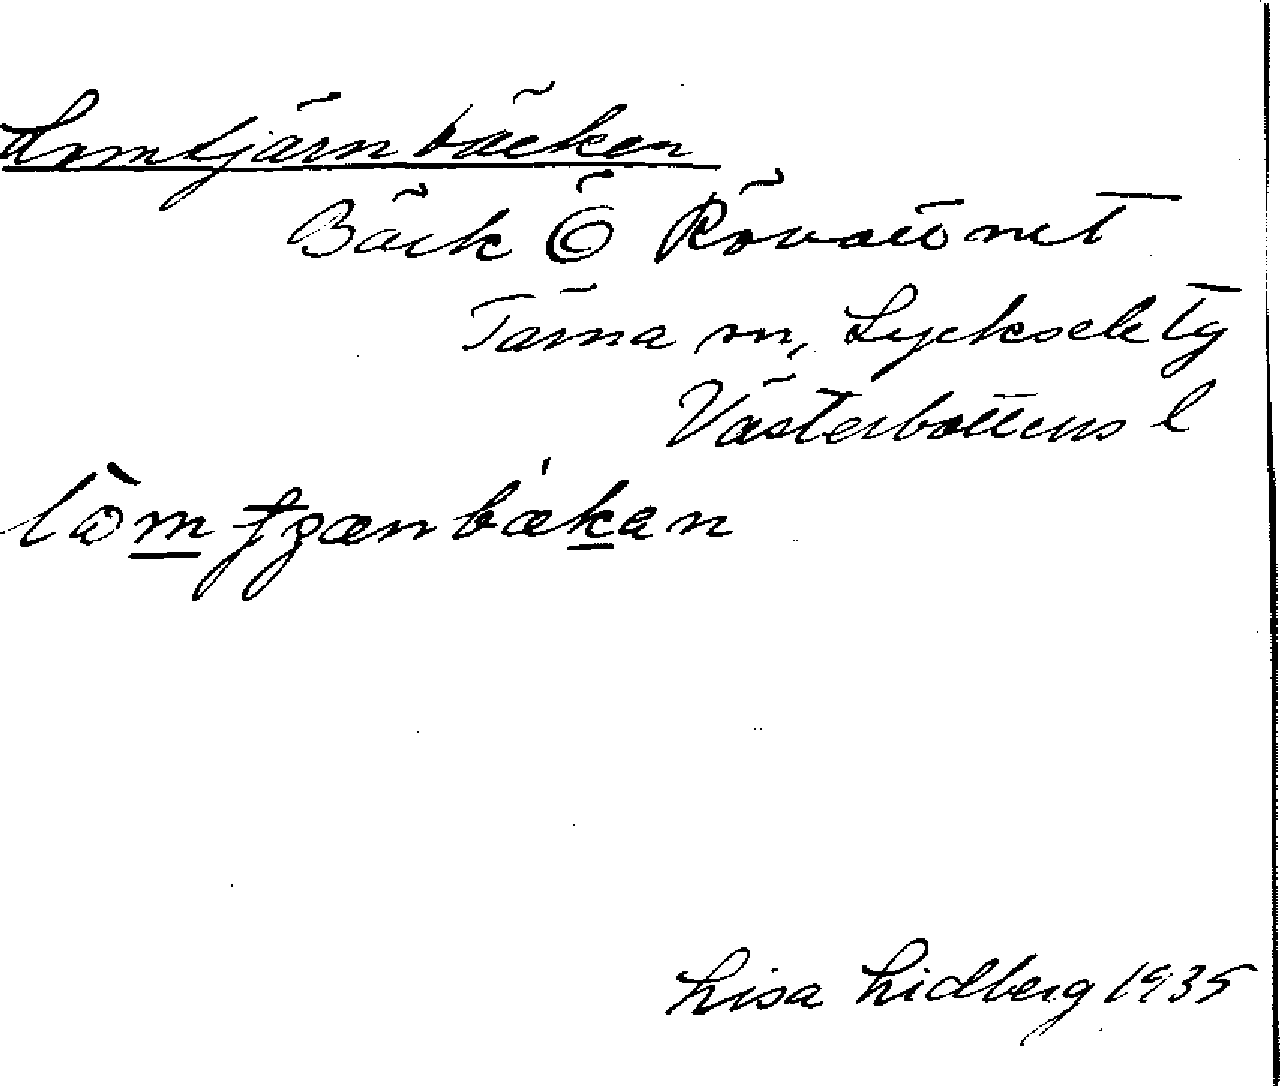 Lomtjärnbäcken
Bäck Ö
Tärna sn, Lycksele tg
Västerbottens l
lòm tjænbækan
Lisa Lidberg 1935